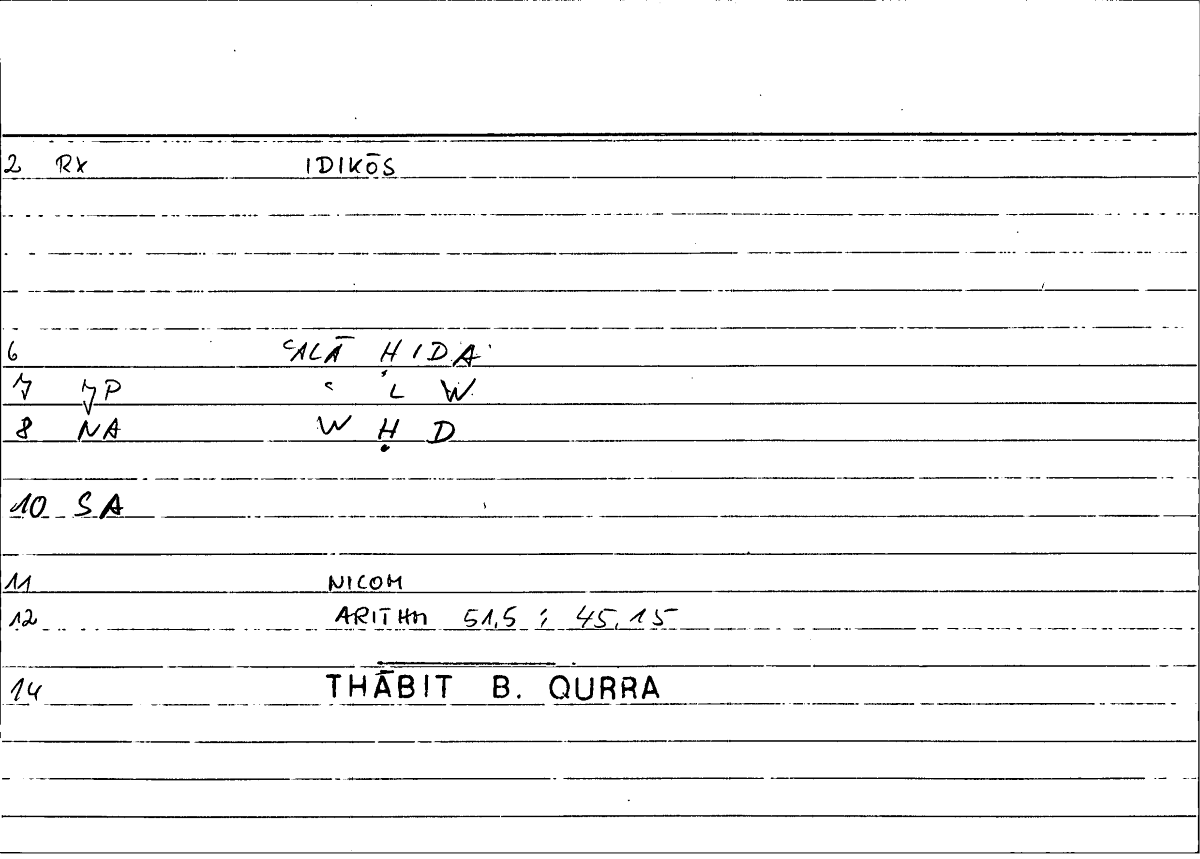 2 RX IDIKŌS
6 ʿALĀ ḤIDA
7 JP ʿ L W
8 NA W Ḥ D
10 SA
11 NICOM
12 ARITHM 51,5 ; 45,15
14 THĀBIT B. QURRA